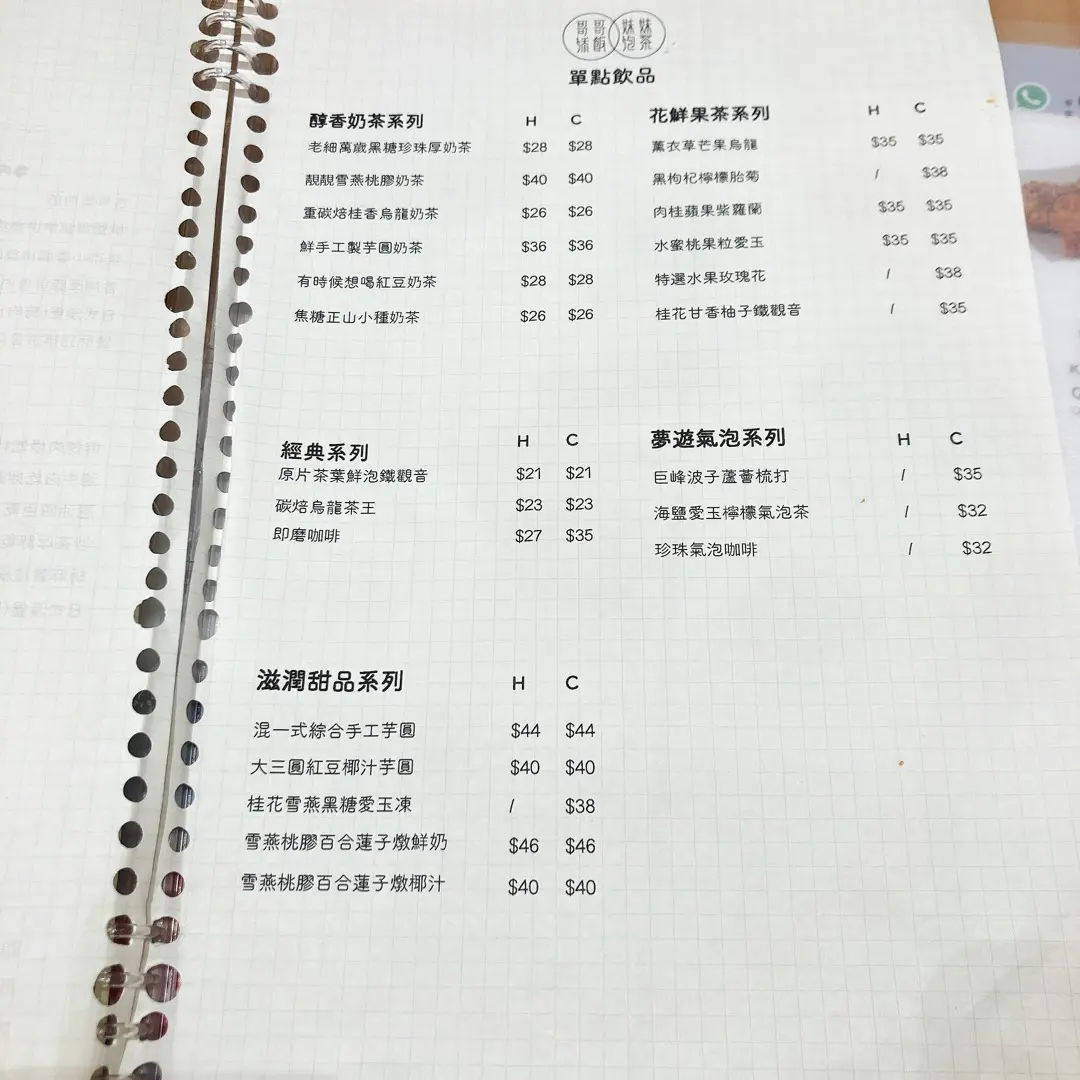 哥哥 妹妹
添飯 泡茶
單點飲品
醇香奶茶系列 H C
老細萬歲黑糖珍珠厚奶茶 $28 $28
靚靚雪燕桃膠奶茶 $40 $40
重碳焙桂香烏龍奶茶 $26 $26
鮮手工製芋圓奶茶 $36 $36
有時候想喝紅豆奶茶 $28 $28
焦糖正山小種奶茶 $26 $26
花鮮果茶系列 H C
薰衣草芒果烏龍 $35 $35
黑枸杞檸檬胎菊 / $38
肉桂蘋果紫羅蘭 $35 $35
水蜜桃果粒愛玉 $35 $35
特選水果玫瑰花 / $38
桂花甘香柚子鐵觀音 / $35
經典系列 H C
原片茶葉鮮泡鐵觀音 $21 $21
碳焙烏龍茶王 $23 $23
即磨咖啡 $27 $35
夢遊氣泡系列 H C
巨峰波子蘆薈梳打 / $35
海鹽愛玉檸檬氣泡茶 / $32
珍珠氣泡咖啡 / $32
滋潤甜品系列 H C
混一式綜合手工芋圓 $44 $44
大三圓紅豆椰汁芋圓 $40 $40
桂花雪燕黑糖愛玉凍 / $38
雪燕桃膠百合蓮子燉鮮奶 $46 $46
雪燕桃膠百合蓮子燉椰汁 $40 $40